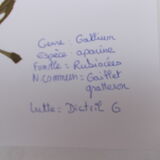 Genre : Gallium
Espèce : aparine
Famille : Rubiacées
N.commun : Gaillet
gratteron
Lutte : Dictril G